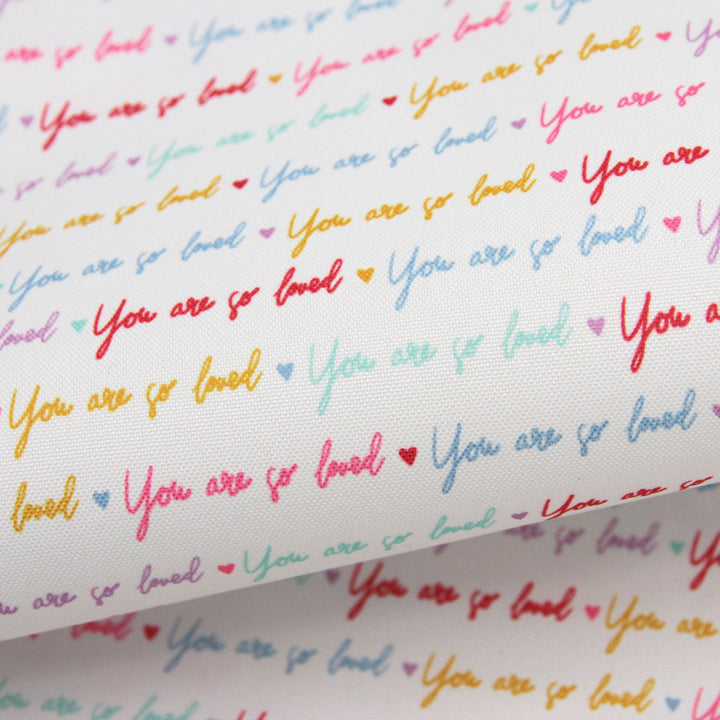 are so loved You are so loved
You are so loved You are so loved
so loved You are so loved You are so loved
You are so loved You are so loved You are so
You are so loved You are so loved You are
loved You are so loved You are so loved
You are so loved You are so loved You
loved You are so loved You are so loved
are so loved You are so loved You are so
loved You are so loved You are
You are so loved You are so loved
You are so loved